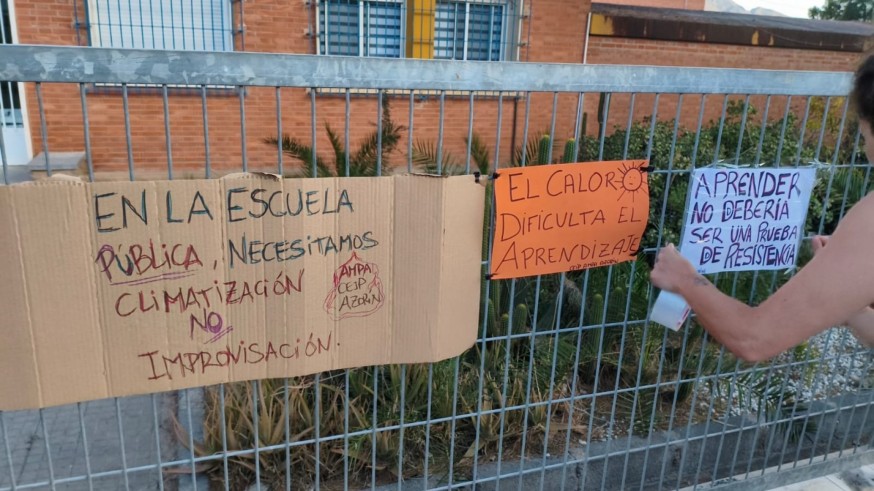 EN LA ESCUELA
PÚBLICA, NECESITAMOS
CLIMATIZACIÓN
NO
IMPROVISACIÓN.
AMPA
CEIP
AZORÍN
EL CALOR
DIFICULTA EL
APRENDIZAJE
CEIP
APRENDER
NO DEBERÍA
SER UNA PRUEBA
DE RESISTENCIA